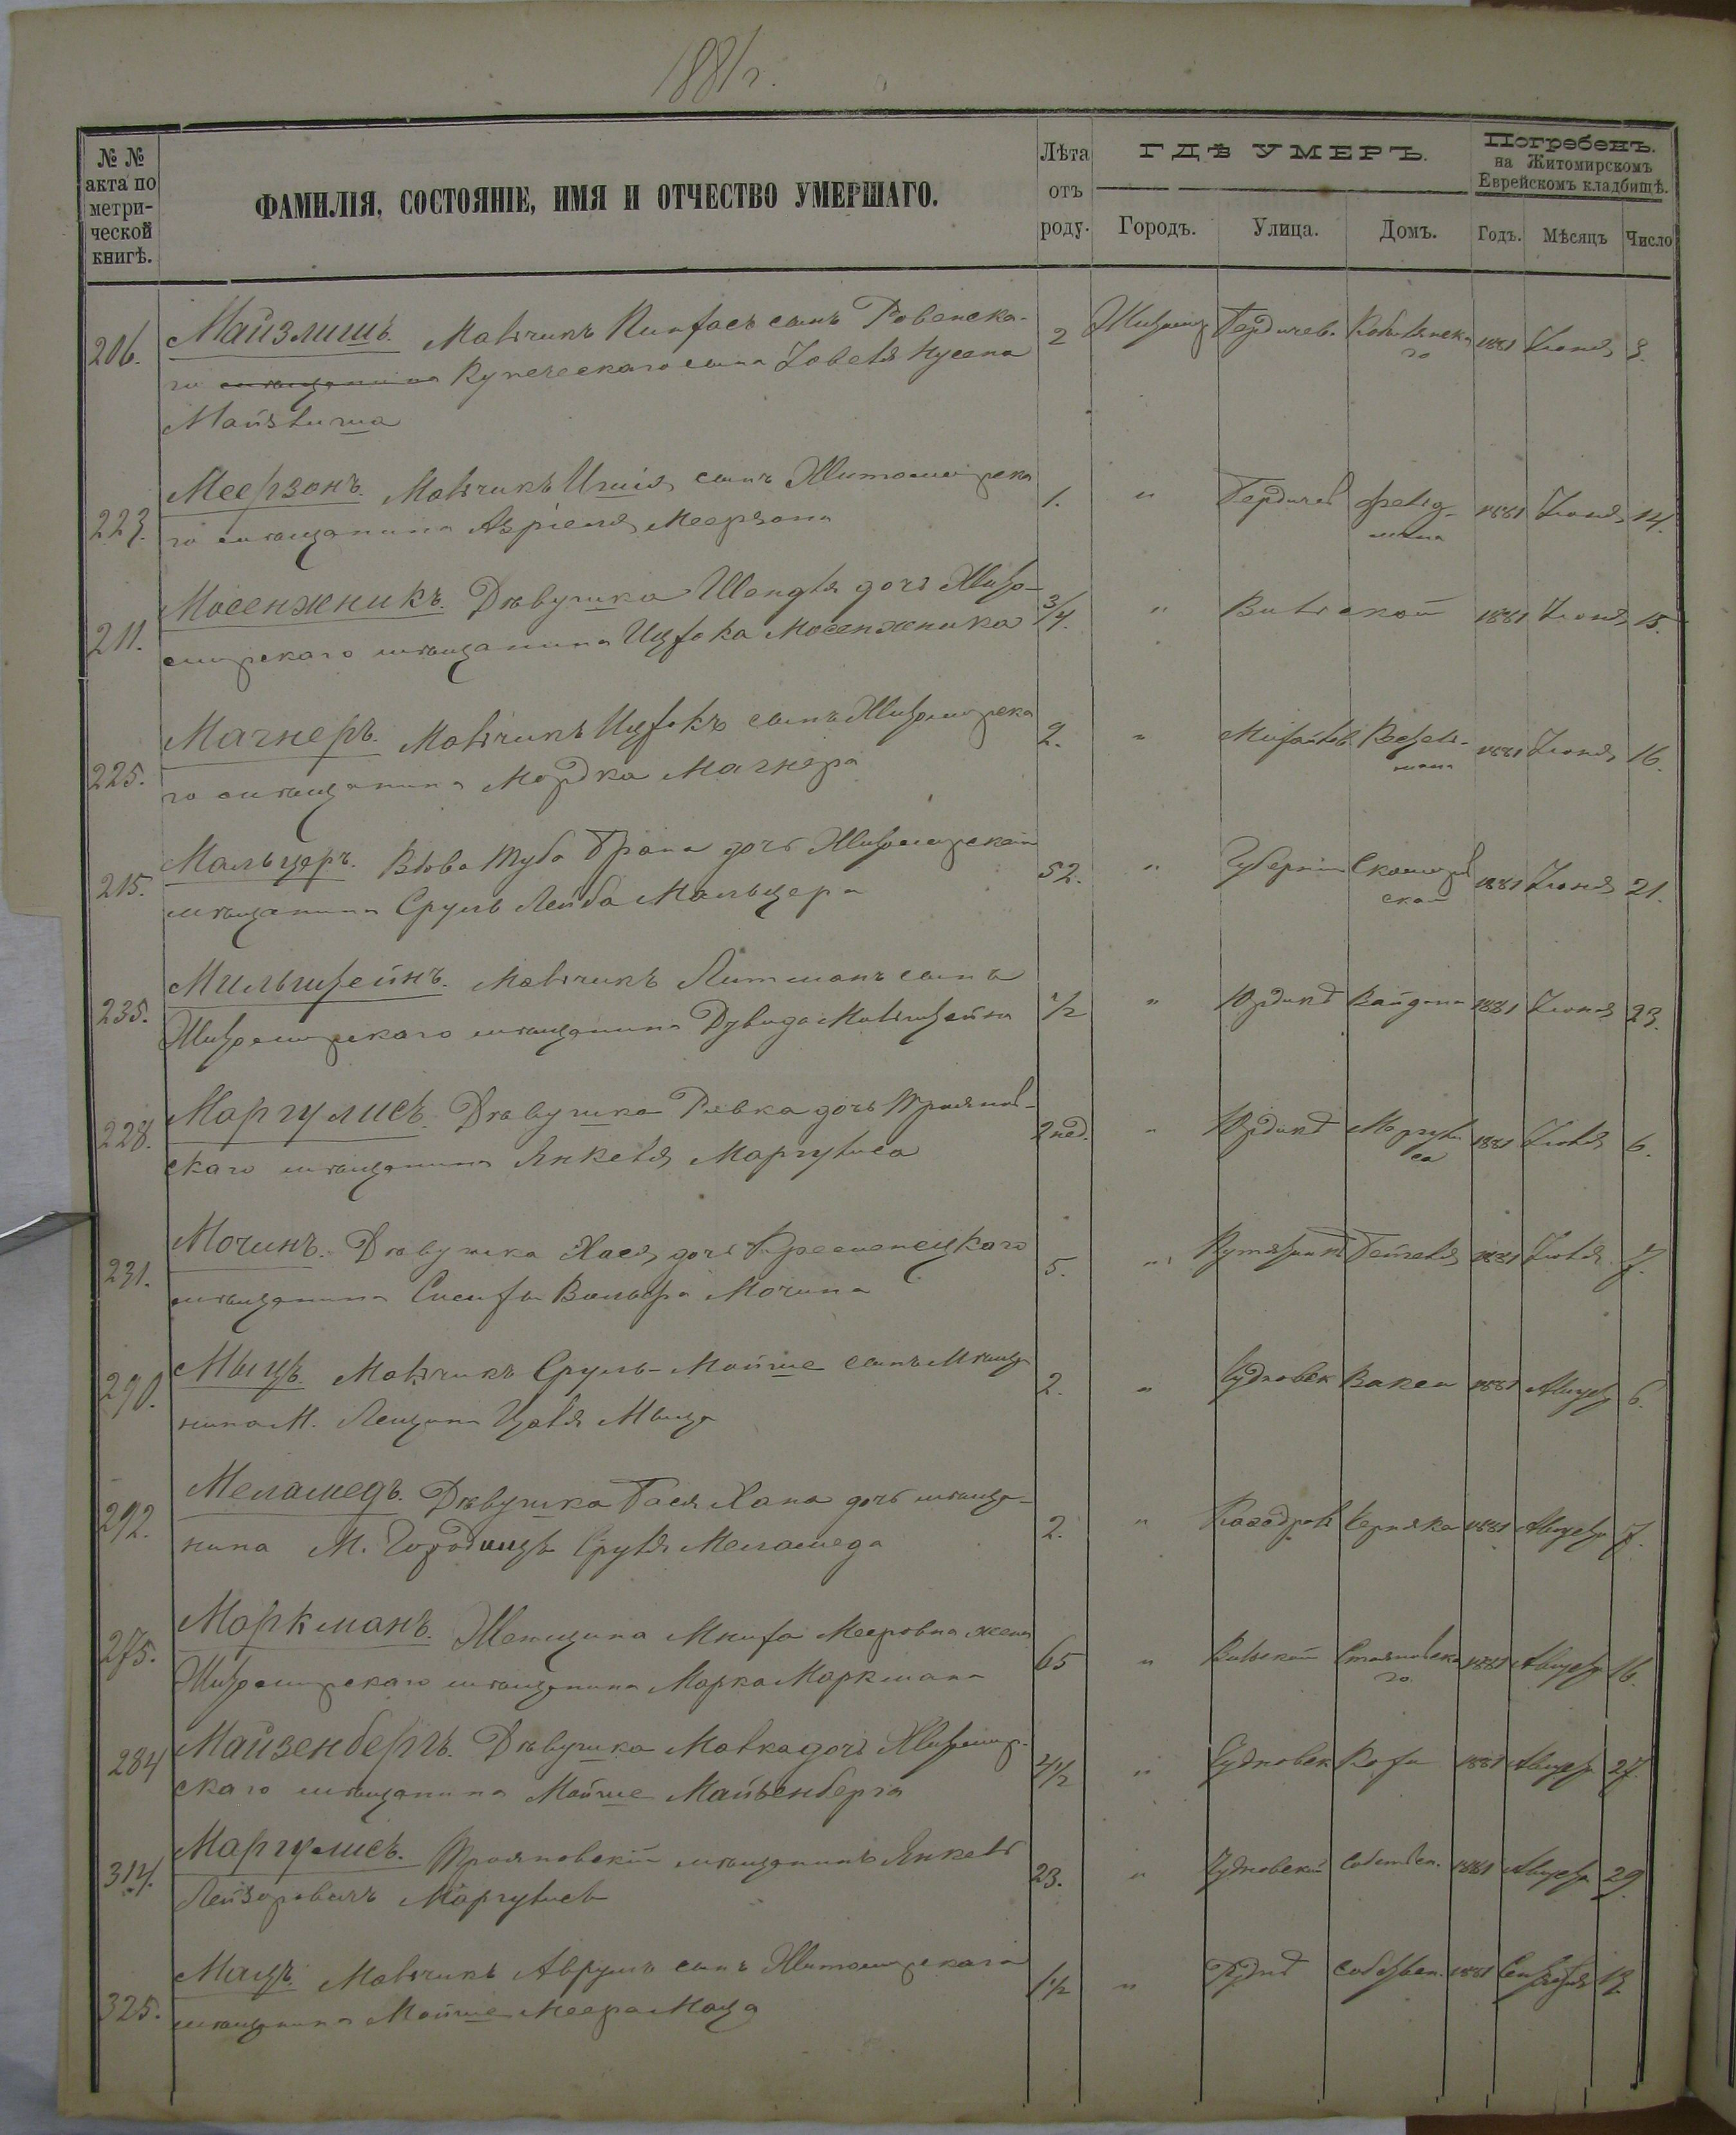 1881 г.
№ № акта по метрической книгѣ.
ФАМИЛІЯ, СОСТОЯНІЕ, ИМЯ И ОТЧЕСТВО УМЕРШАГО.
Лѣта отъ роду.
ГДѢ УМЕРЪ.
Городъ. Улица. Домъ.
Погребенъ.
на Житомирскомъ
Еврейскомъ кладбищѣ.
Годъ. Мѣсяцъ Число
206. Майзлишъ. Мальчикъ Пинхасъ сынъ Ровенска- 2 Житомир Бердичев. 1881 Іюня 3.
го мѣщанина Купеческаго сына Іовеля Нусена
Майзлиша
223. Меерзонъ. Мальчикъ сынъ Житомирска 1. " Бердичев Фельд- 1881 Іюня 14.
го мѣщанина Азріеля Меерзона мана
211. Мосенжникъ. Дѣвушка Шендля дочь Жито- 3/4. " Вильской 1881 Іюня 15.
мирскаго мѣщанина Ицхока Мосенжника
225. Магнеръ. Мальчикъ Ицхокъ сынъ Житомирска 2. " Михайлов. 1881 Іюня 16.
го мѣщанина Мордка Магнера
215. Мальцеръ. Вдова Туба Брана дочь Житомирскаго 52. " Губернія 1881 Іюня 21.
мѣщанина Сруль Лейба Мальцера
235. Мильштейнъ. Мальчикъ Литманъ сынъ 1/2 " Вайдана 1881 Іюня 23.
Житомирскаго мѣщанина Дувида Мильштейна
228. Маргулисъ. Дѣвушка Ривка дочь Трояновъ- 2 нед. " Маргули 1881 Іюля 6.
скаго мѣщанина Янкеля Маргулиса са
231. Мочинъ. Дѣвушка Хася дочь Кременецкаго 5. " 1881 Іюля 7.
мѣщанина Вольфа Мочина
290. Мыцъ. Мальчикъ Сруль-Мойше сынъ Мѣща 2. " Чудновск 1881 Август 6.
нина М. Лещина Мыца
292. Меламедъ. Дѣвушка Бася Хана дочь мѣща- 2. " Черняка 1881 Август 7.
нина М. Городницъ Сруля Меламеда
275. Маркманъ. Женщина Мееровна жена 65 " Вильской 1881 Август 16.
Житомирскаго мѣщанина Марка Маркмана го
284 Майзенбергъ. Дѣвушка Малка дочь Житомир- 2 1/2 " Чудновск 1881 Август 27.
скаго мѣщанина Мойше Майзенберга
314. Маргулисъ. Трояновскій мѣщанинъ Янкель 23. " Чудновскій Собствен. 1881 Август 29.
Лейзоровичъ Маргулисъ
325. Мацъ. Мальчикъ Аврумъ сынъ Житомирскаго 1 1/2 " Собствен. 1881 Сентября 13.
мѣщанина Мойше Меера Маца